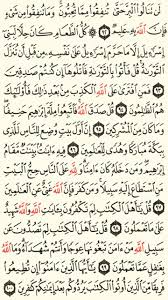 لَن تَنَالُوا۟ ٱلْبِرَّ حَتَّىٰ تُنفِقُوا۟ مِمَّا تُحِبُّونَ ۚ وَمَا تُنفِقُوا۟ مِن شَىْءٍ
فَإِنَّ ٱللَّهَ بِهِۦ عَلِيمٌ ٩٢ كُلُّ ٱلطَّعَامِ كَانَ حِلًّا لِّبَنِىٓ
إِسْرَٰٓءِيلَ إِلَّا مَا حَرَّمَ إِسْرَٰٓءِيلُ عَلَىٰ نَفْسِهِۦ مِن قَبْلِ أَن تُنَزَّلَ
ٱلتَّوْرَىٰةُ ۗ قُلْ فَأْتُوا۟ بِٱلتَّوْرَىٰةِ فَٱتْلُوهَآ إِن كُنتُمْ صَٰدِقِينَ
٩٣ فَمَنِ ٱفْتَرَىٰ عَلَى ٱللَّهِ ٱلْكَذِبَ مِنۢ بَعْدِ ذَٰلِكَ فَأُو۟لَٰٓئِكَ
هُمُ ٱلظَّٰلِمُونَ ٩٤ قُلْ صَدَقَ ٱللَّهُ ۗ فَٱتَّبِعُوا۟ مِلَّةَ إِبْرَٰهِيمَ حَنِيفًا
وَمَا كَانَ مِنَ ٱلْمُشْرِكِينَ ٩٥ إِنَّ أَوَّلَ بَيْتٍ وُضِعَ لِلنَّاسِ
لَلَّذِى بِبَكَّةَ مُبَارَكًا وَهُدًى لِّلْعَٰلَمِينَ ٩٦ فِيهِ ءَايَٰتٌۢ بَيِّنَٰتٌ مَّقَامُ
إِبْرَٰهِيمَ ۖ وَمَن دَخَلَهُۥ كَانَ ءَامِنًا ۗ وَلِلَّهِ عَلَى ٱلنَّاسِ حِجُّ ٱلْبَيْتِ
مَنِ ٱسْتَطَاعَ إِلَيْهِ سَبِيلًا ۚ وَمَن كَفَرَ فَإِنَّ ٱللَّهَ غَنِىٌّ عَنِ ٱلْعَٰلَمِينَ
٩٧ قُلْ يَٰٓأَهْلَ ٱلْكِتَٰبِ لِمَ تَكْفُرُونَ بِـَٔايَٰتِ ٱللَّهِ وَٱللَّهُ شَهِيدٌ
عَلَىٰ مَا تَعْمَلُونَ ٩٨ قُلْ يَٰٓأَهْلَ ٱلْكِتَٰبِ لِمَ تَصُدُّونَ عَن
سَبِيلِ ٱللَّهِ مَنْ ءَامَنَ تَبْغُونَهَا عِوَجًا وَأَنتُمْ شُهَدَآءُ ۗ وَمَا ٱللَّهُ
بِغَٰفِلٍ عَمَّا تَعْمَلُونَ ٩٩ يَٰٓأَيُّهَا ٱلَّذِينَ ءَامَنُوٓا۟ إِن تُطِيعُوا۟
فَرِيقًا مِّنَ ٱلَّذِينَ أُوتُوا۟ ٱلْكِتَٰبَ يَرُدُّوكُم بَعْدَ إِيمَٰنِكُمْ كَٰفِرِينَ ١٠٠